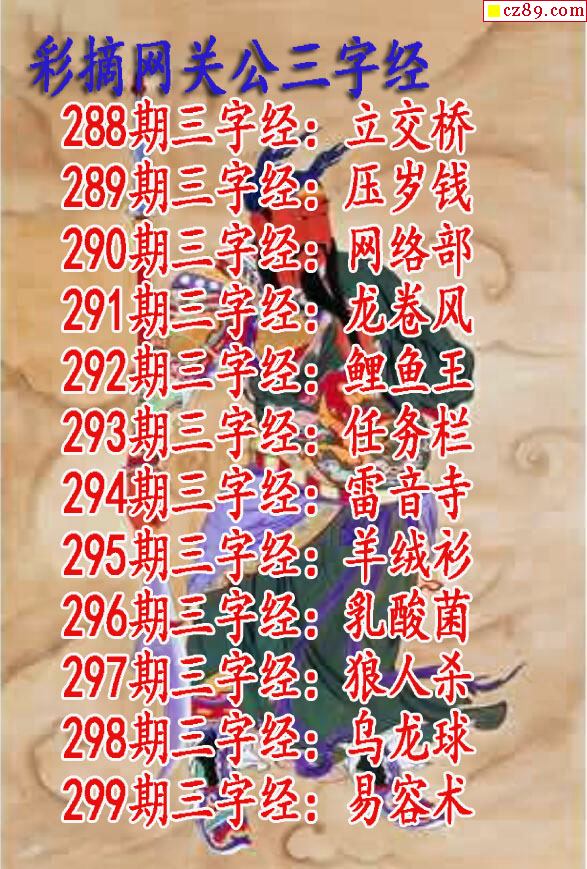 cz89.com
彩摘网关公三字经
288期三字经：立交桥
289期三字经：压岁钱
290期三字经：网络部
291期三字经：龙卷风
292期三字经：鲤鱼王
293期三字经：任务栏
294期三字经：雷音寺
295期三字经：羊绒衫
296期三字经：乳酸菌
297期三字经：狼人杀
298期三字经：乌龙球
299期三字经：易容术